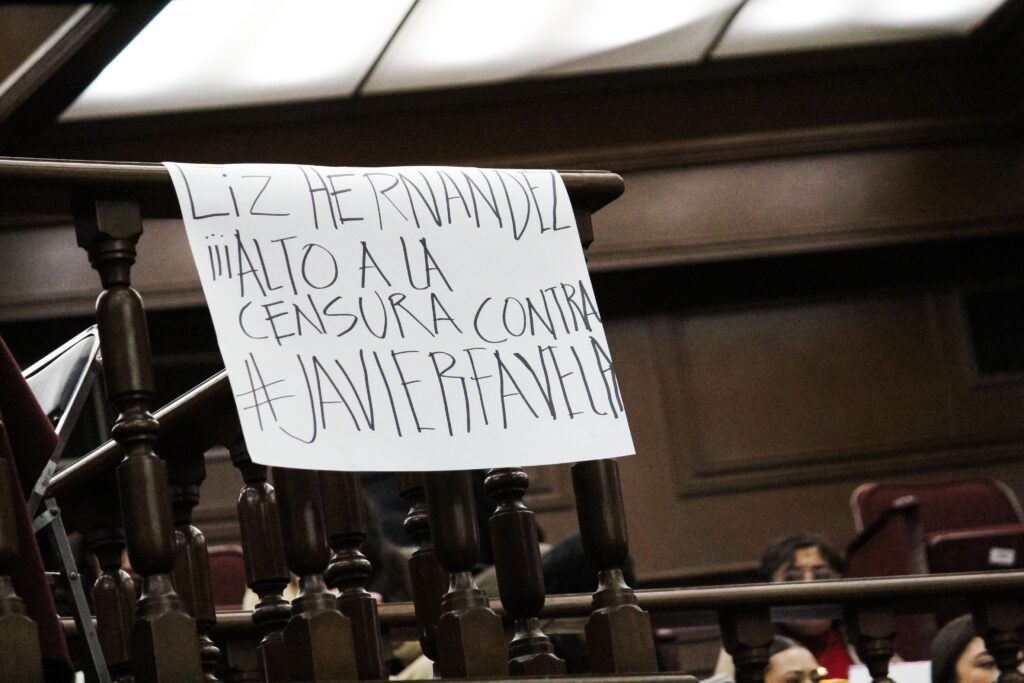 LIZ HERNANDEZ
¡¡¡ALTO A LA
CENSURA CONTRA
#JAVIERFAVELA